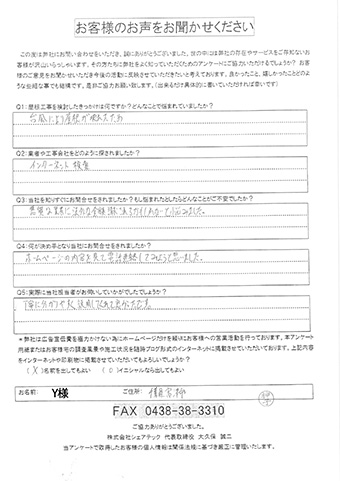 お客様のお声をお聞かせください
この度は弊社にお問い合わせをいただき、誠にありがとうございました。世の中には弊社の存在やサービスをご存知ないお
客様が沢山いらっしゃいます。その方たちに弊社をよく知っていただくためのアンケートにご協力いただけるでしょうか？お
客様のご意見をお聞かせいただき今後の活動に反映させていただきたいと考えております。良かったこと、嬉しかったことどのよ
うな些細な事でも結構です。是非ご協力お願い致します。（出来るだけ具体的に書いていただければ幸いです）
Q1：屋根工事を検討したきっかけは何ですか？どんなことで悩まれていましたか？
台風により屋根が
Q2：業者や工事会社をどのように探されましたか？
インターネット検索
Q3：当社を知りすぐにお問合せをされましたか？もし悩まれたとしたらどんなことがご不安でしたか？
Q4：何が決め手となり当社にお問合せをされましたか？
ホームページの内容を見て
Q5：実際に当社担当者がお伺いしていかがでしたでしょうか？
丁寧に分かりやすく説明して
＊弊社は広告宣伝費を極力かけない為にホームページだけを経緯にお客様への営業活動を行っております。本アンケート
用紙またはお客様宅の調査風景や施工状況を随時ブログ形式のインターネットに掲載させていただいております。上記内容
をインターネットや印刷物に掲載させていただいてもよろしいでしょうか？
（X）名前を出してもよい （○）イニシャルなら出してもよい
お名前： Y様 ご住所：
FAX 0438-38-3310
ご協力ありがとうございました。
株式会社シェアテック 代表取締役 大久保 誠二
当アンケートで取得したお客様の個人情報は関係法規に基づき厳正に管理いたします。